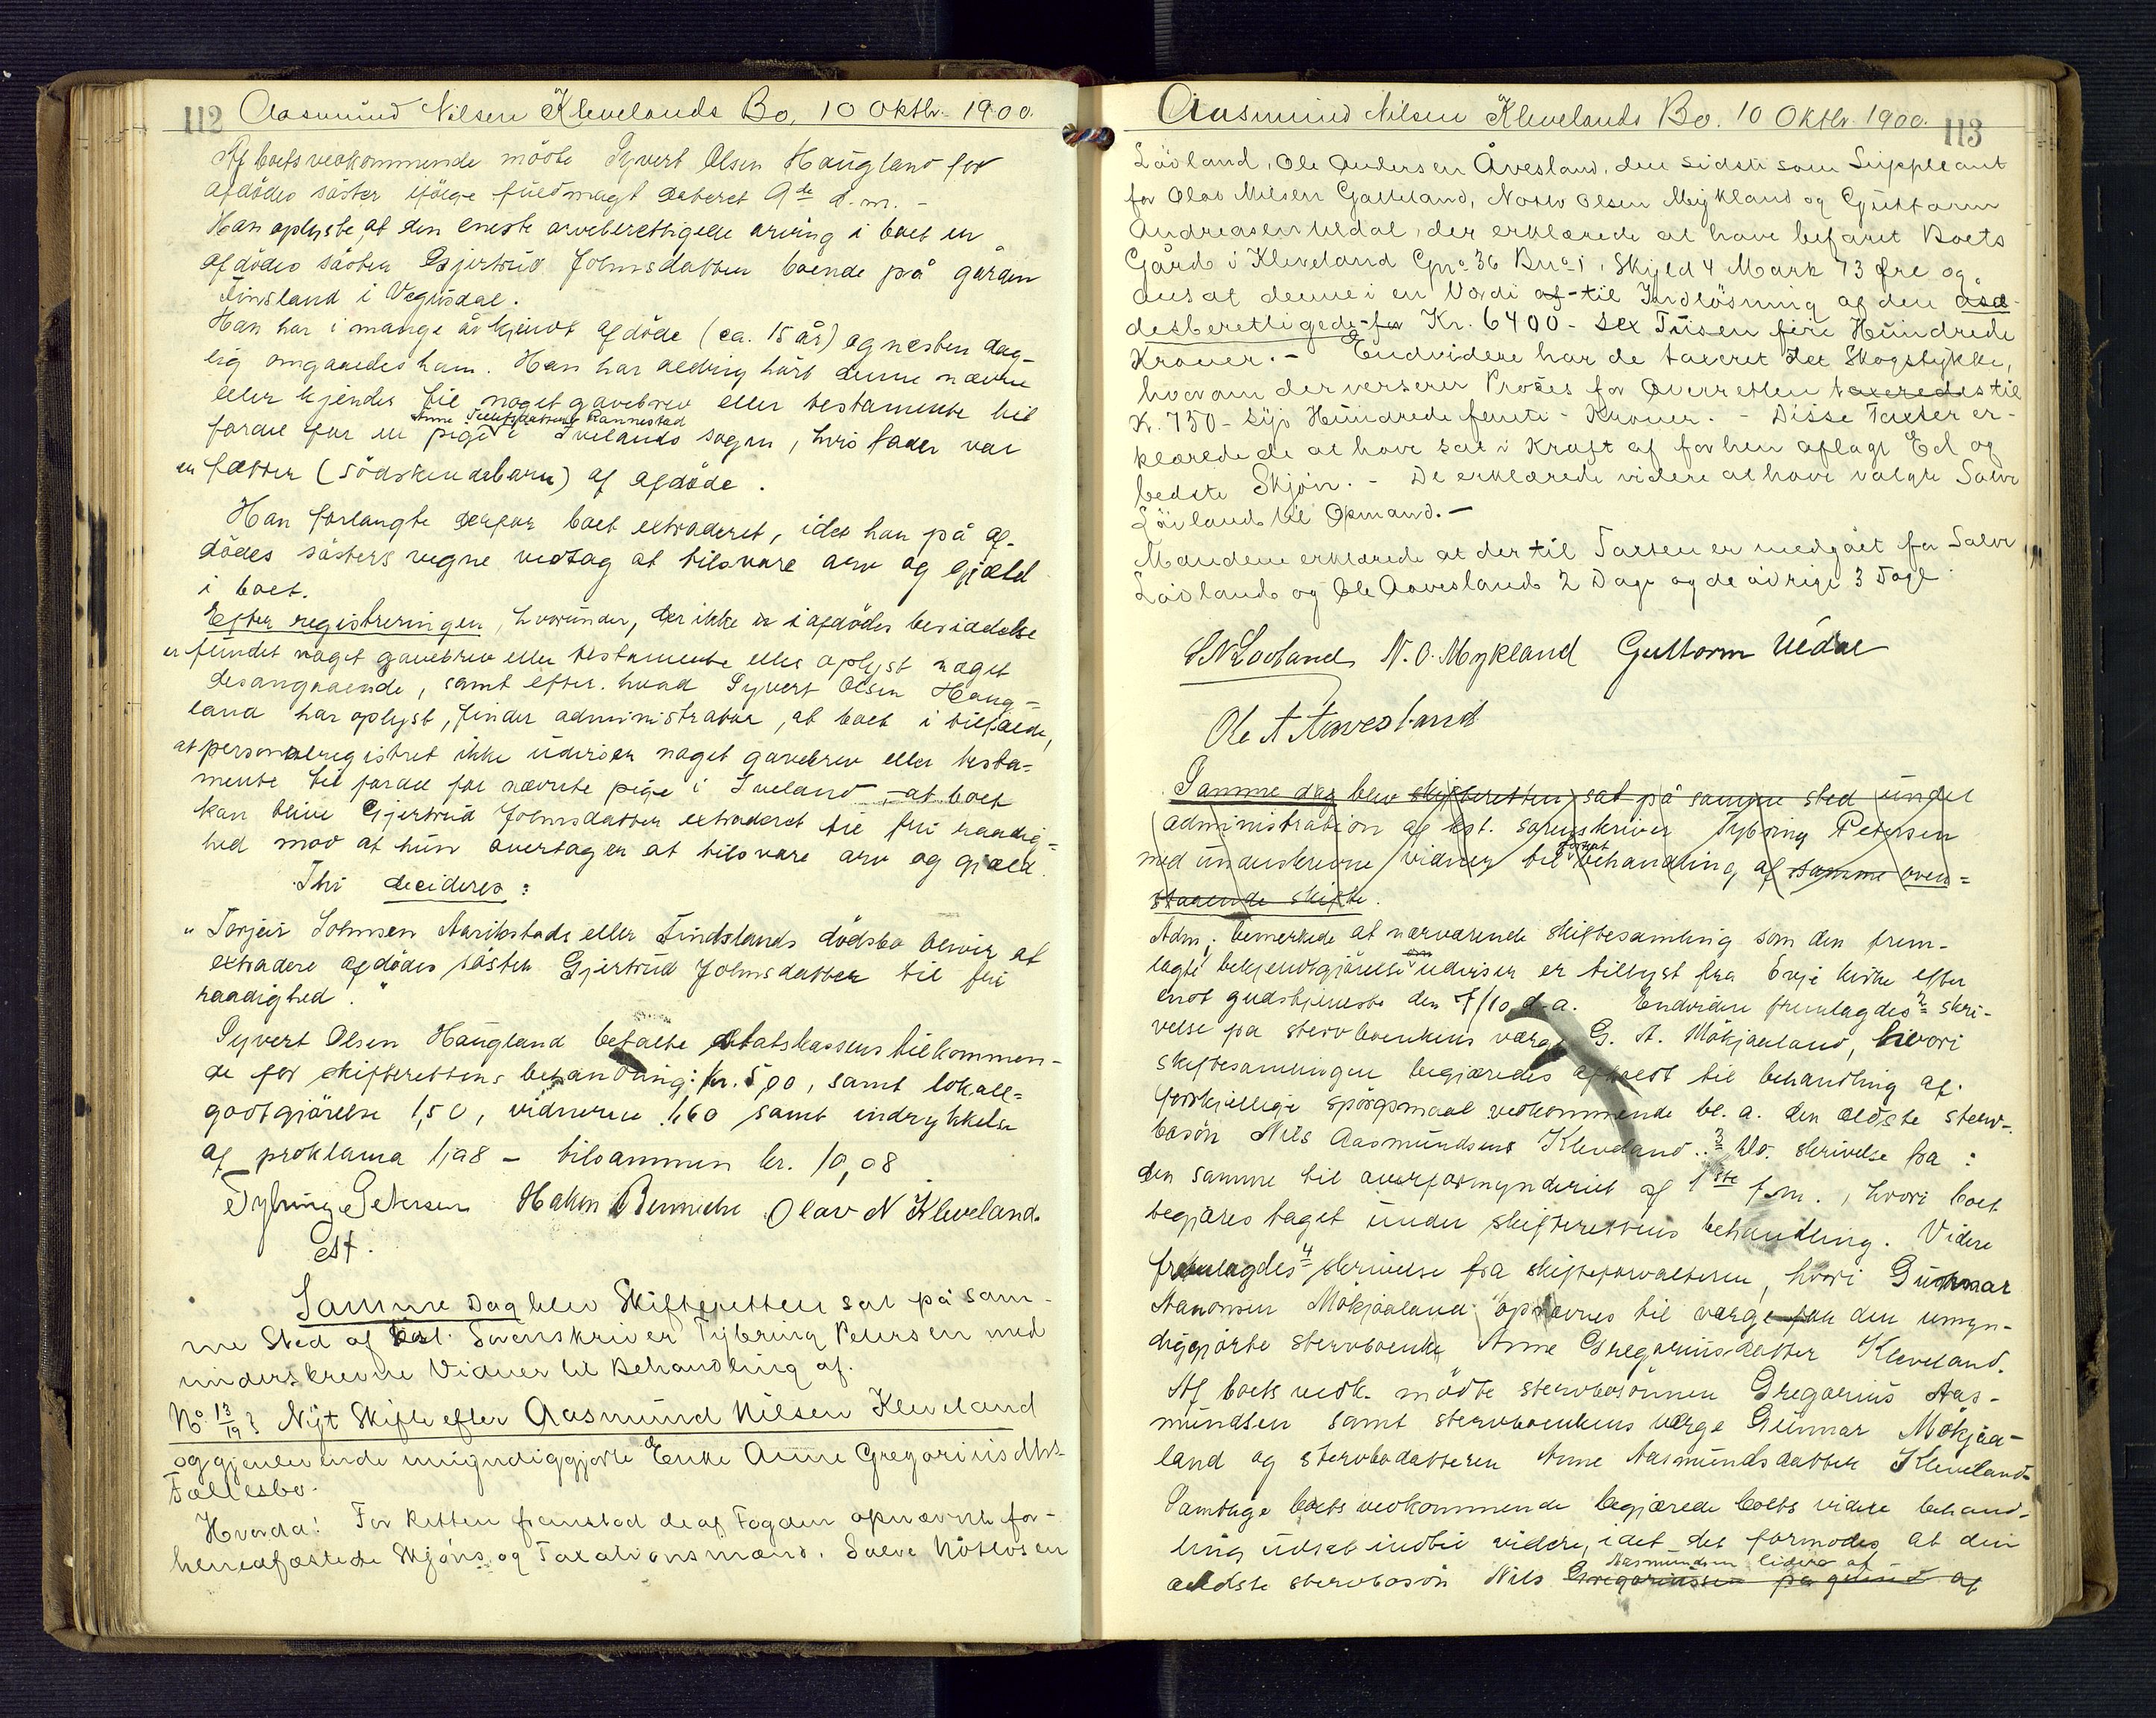 112 Aasmund Nilsen Klevelands Bo, 10 Oktbr. 1900.
Af boets vedkommende mödte Syvert Olsen Haugland for
afdödes söster ifölge fuldmagt dateret 9de d.m. -
Han oplyste, at den eneste arveberettigede arving i boet er
afdödes söster Gjertrud Johnsdatter boende på gården
Finsland i Vegusdal.
Han har i mange år kjendt afdöde (ca. 15 år) og næsten dag-
lig omgaaedes ham. Han har aldrig hört denne nævne
eller kjender til noget gavebrev eller testamente til
Anne Tellefsdatter Rannestad
fordel for en pige i Ivelands sogn, hvis fader var
en fætter (södskendebarn) af afdöde.
Han forlangte derfor boet extraderet, idet han på af-
dödes sösters vegne vedtag at tilsvare arv og gjæld
i boet.
Efter registreringen, hvorunder, der ikke er i afdödes besiddelse
er fundet noget gavebrev eller testamente eller oplyst noget
desangaaende, samt efter hvad Syvert Olsen Haug=
land har oplyst, finder administrator, at boet i tilfælde,
at personalregistret ikke udviser noget gavebrev eller testa=
mente til fordel for nævnte pige i Iveland - at boet
kan blive Gjertrud Johnsdatter extraderet til fri raadig=
hed mod at hun overtager at tilsvare arv og gjæld.
Thi decideres:
"Torjeir Johnsen Aaribstads eller Findslands dödsbo blivir at
extradere afdödes söster Gjertrud Johnsdatter til fri
raadighed."
Syvert Olsen Haugland betalte statskassens tilkommen-
de for skifterettens behandling: kr. 5,00, samt lokall=
godtgjörelse 1,50, vidnerne 1,60 samt indrykkelse
af proklama 1,98 - tilsammen kr. 10,08
Tybring Petersen Haken Bennche Olav N Kleveland.
cst.
Samme Dag blev Skifteretten sat på sam-
me Sted af Kst. Sorenskriver Tybring Petersen med
underskrevne Vidner til Behandling af.
No 13/19 } Nyt Skifte efter Aasmund Nilsen Kleveland
og gjenlevende umyndiggjorte Enke Anne Gregoriusdtrs
Fællesbo.
Hvorda! For Retten fremstod de af Fogden opnævnte for-
henedfæstede Skjöns og Taxationsmænd, Salve Nótlvsen
Aasmund Nilsen Klevelands Bo. 10 Oktbr. 1900. 113
Lövland, Ole Andersen Åvesland, den sidste som Suppleant
for Olav Nilsen Galteland, Notlv Olsen Mykland og Guttorm
Andreasen Uldal, der erklærede at have befaret Boets
Gård i Kleveland Gno 36 Bno 1, Skyld 4 Mark 73 Øre og
ansat denne i en Værdi af - til Indlösning af den åsæ-
desberettigede for Kr. 6400 - sex Tusen fire Hundrede
Kroner. - Endvidere har de taxeret det Skogstykke,
hvorom der verserer Proces for Overretten taxeredes til
Kr. 750 - Syv Hundrede femti - Kroner. - Disse Taxter er-
klærede de at have sat i Kraft af forhen aflagt Ed og
bedste Skjön. - De erklærede videre at have valgte Salve
Lövland til Opmand. -
Mændene erklærede at der til Taxten er medgået for Salve
Lövland og Ole Aavesland 2 Dage og de övrige 3 Dage
S N Lovland N. O. Mykland Guttorm Uldal
Ole A Aavesland
Samme dag blev skifteretten sat på samme sted under
administration af kst. sorenskriver Tybring Petersen
med underskrevne vidner til fortsat behandling af samme oven=
staaende skifte.
Adm. bemerkede at nærværende skiftesamling som den frem-
lagte bekjendtgjörelse om udviser er tillyst fra Evje kirke efter
endt gudstjeneste den 7/10 d.a. Endvidere fremlagdes 2 skri-
velse fra stervboenkens værge G. A. Mökjaaland, hvori
skiftesamlingen begjæredes afholdt til behandling af
forskjellige spörgsmaal vedkommende bl. a. den ældste sterv-
bosön Nils Aasmundsens Kleveland.. 3 Do. skrivelse fra:
den samme til overformynderiet af 1ste f.m., hvori boet
begjæres taget under skifterettens behandling. Videre
fremlagdes 4 skrivelse fra skifteforvalteren, hvori Gunnar
Aanonsen Mökjaaland opnævnes til værge for den umyn-
diggjorte stervboenke Anne Gregoriusdatter Kleveland.
Af boets vedk. mödte stervbosönnen Gregorius Aas-
mundsen samt stervboenkens værge Gunnar Mökjaa-
land og stervbodatteren Anne Aasmundsdatter Kleveland.
Samtlige boets vedkommende begjærede boets videre behand-
ling udsat indtil videre, idet det formodes at den
Aasmundsen lider af
ældste stervbosön Nils Gregoriussen på grund af